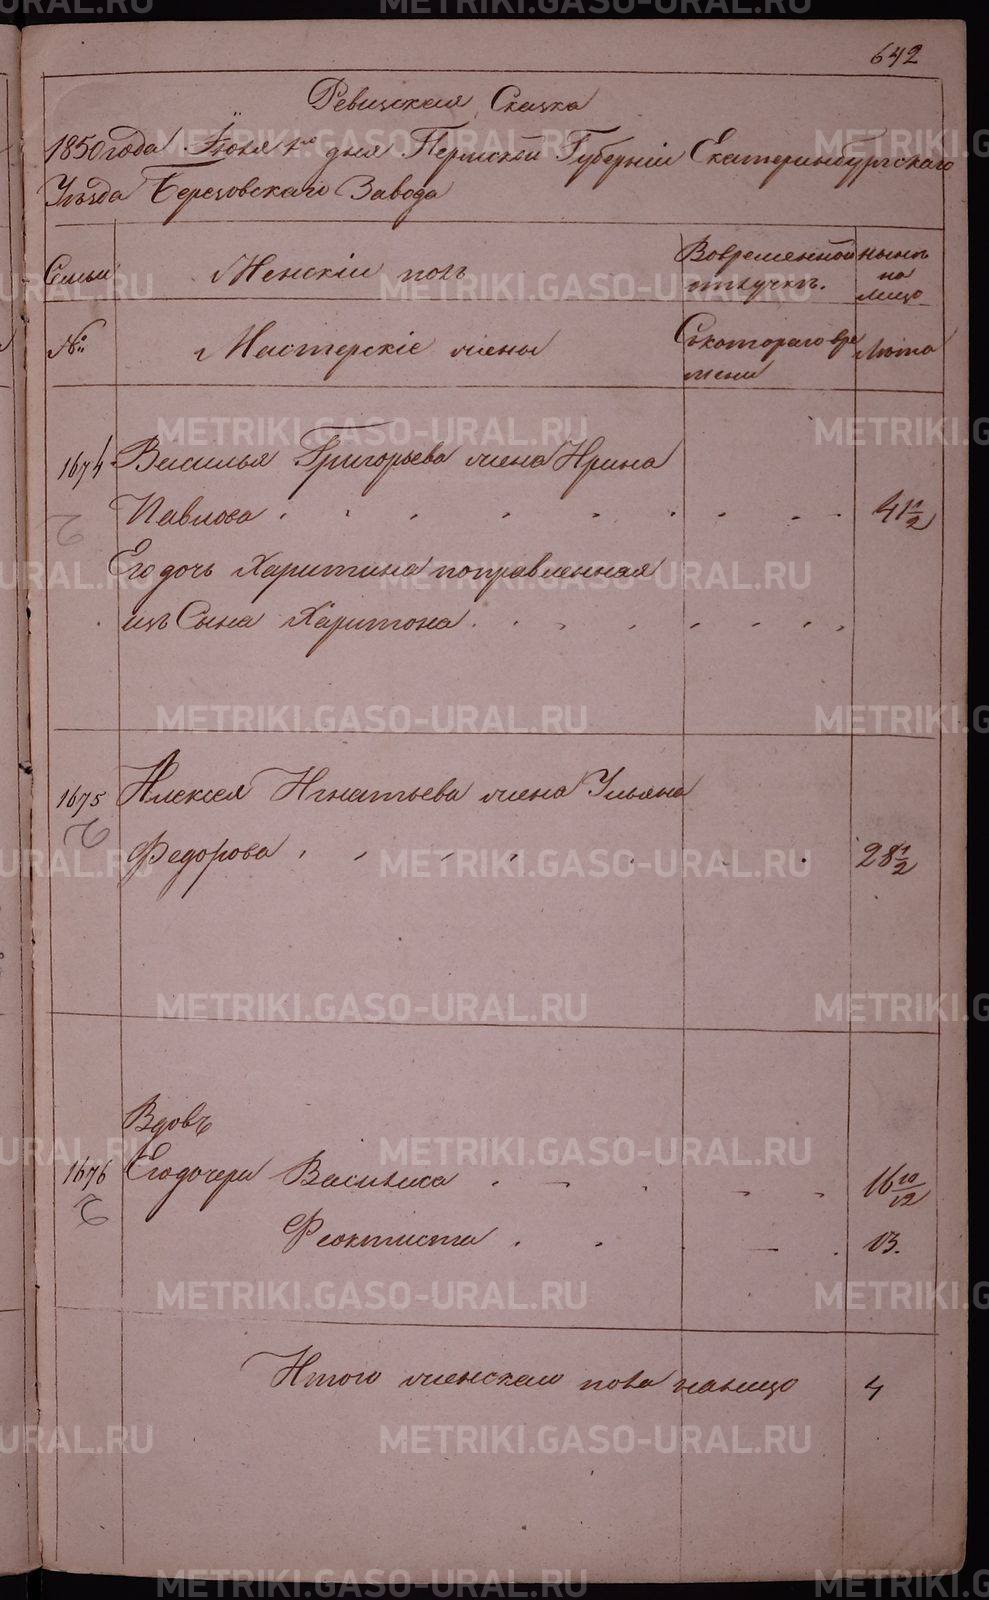 642
Ревизская Сказка
1850 года Іюля 1го дня Пермской Губерніи Екатеринбургскаго
Уѣзда Березовскаго Завода
Семьи
Женскій полъ
Во временной отлучкѣ.
нынѣ на лицо
№
Мастерскіе жены
Съ котораго времени
Лѣта
1674 Василья Григорьева жена Ирина
Павлова 41 1/2
Его дочь Харитина поправленная
изъ Сына Харитона
1675 Алексея Игнатьева жена Ульяна
Федорова 28 1/2
Вдовъ
1676 Его дочери Василиса 16 10/12
Феоктиста 13.
Итого женскаго пола налицо 4
METRIKI.GASO-URAL.RU